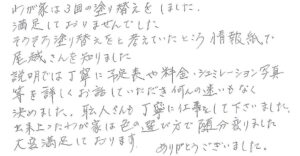 わが家は3回の塗り替えをしました。
満足しておりませんでした
そろそろ塗り替えをと考えていたところ情報紙で
尾越さんを知りました
説明では丁寧に工程表や料金・シュミレーション写真
等を詳しくお話していただき何んの迷いもなく
決めました。職人さんも丁寧に仕事して下さいました。
出来上ったわが家は色の選び方で随分変りました
大変満足しております
ありがとうございました。